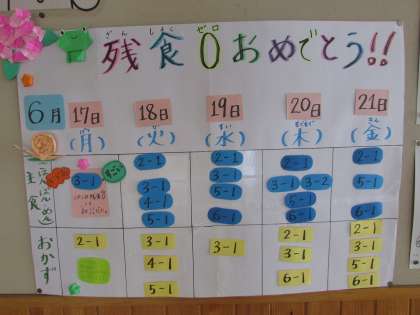 残食0おめでとう!!
ざん しょく ゼロ
6月 17日 18日 19日 20日 21日
(月) (火) (水) (木) (金)
げつ か すい もく きん
主食
(ごはん・パン・めん)
3-1
2-1 3-1 4-1 5-1
2-1 3-1 4-1 6-1
2-1 3-1 3-2 5-1 6-1
2-1 5-1 6-1
おかず
2-1
3-1 4-1 5-1
3-1
2-1 3-1 6-1
2-1 3-1 5-1 6-1